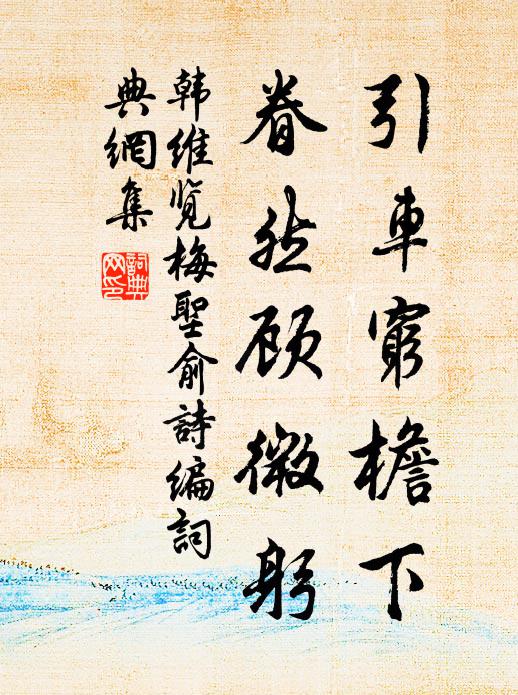 引車窮檐下
眷然顾微躬
韩維览梅聖俞詩编詞
典網集
詞典網印